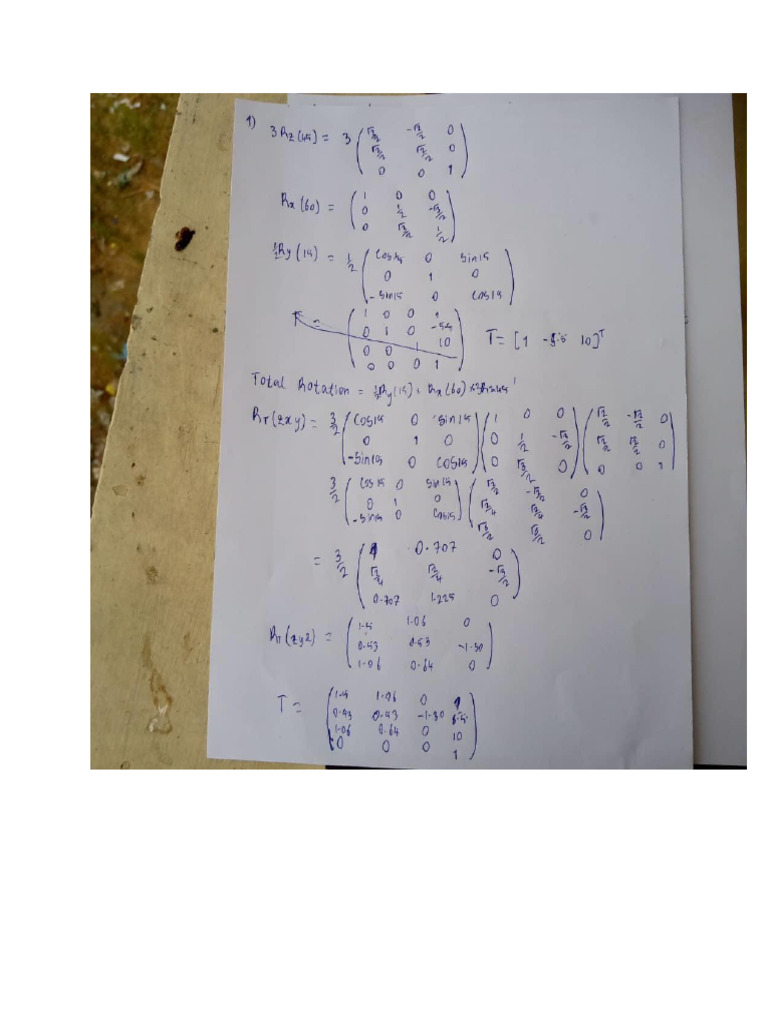 1) 3Rz(45) = 3 ( √2/2 -√2/2 0
√2/2 √2/2 0
0 0 1 )
Rx(60) = ( 1 0 0
0 1/2 -√3/2
0 √3/2 1/2 )
1/2 Ry(15) = 1/2 ( cos15 0 sin15
0 1 0
-sin15 0 cos15 )
T = ( 1 0 0 1
0 1 0 -5.5
0 0 1 10
0 0 0 1 ) T = [1 -5.5 10]^T
Total Rotation = 1/2 Ry(15) x Rx(60) x 3Rz(45)
RT(zxy) = 3/2 ( cos15 0 sin15
0 1 0
-sin15 0 cos15 ) ( 1 0 0
0 1/2 -√3/2
0 √3/2 0 ) ( √2/2 -√2/2 0
√2/2 √2/2 0
0 0 1 )
3/2 ( cos15 0 sin15
0 1 0
-sin15 0 cos15 ) ( √2/2 -√2/2 0
√2/4 √2/4 -√3/2
0 )
= 3/2 ( 1 0.707 0
√2/4 √2/4 -√3/2
0.707 1.225 0 )
= ( 1.5 1.06 0
0.53 0.53 -1.30
1.06 0.64 0 )
T = ( 1.5 1.06 0 1
0.53 0.53 -1.30 5.5
1.06 0.64 0 10
0 0 0 1 )